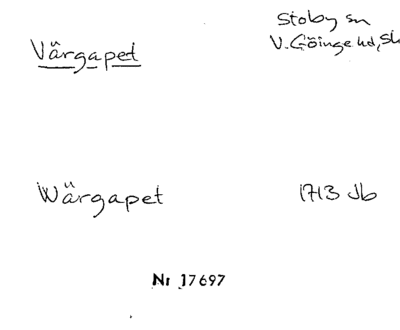 Stoby sn
Värgapet
V. Göinge hd, Sk
Wärgapet
1713 Jb
Nr 17697